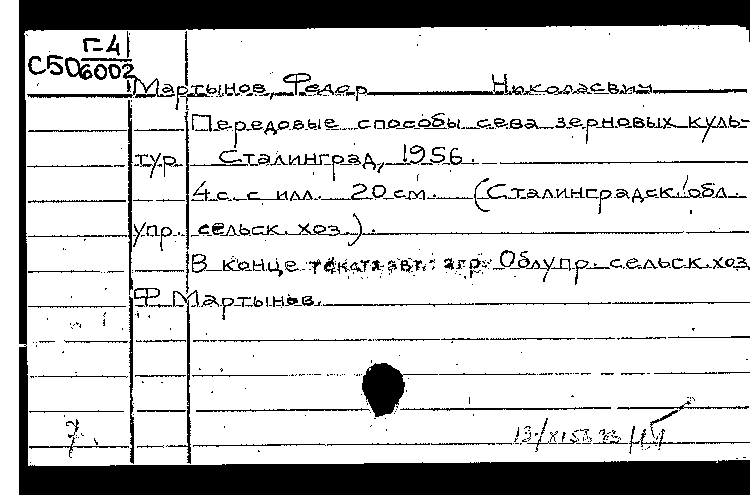 Г-4
С506002
Мартынов, Федор Николаевич
Передовые способы сева зерновых куль-
тур Сталинград, 1956.
4 с. с илл. 20 см. (Сталинградск. обл.
упр. сельск. хоз.).
В конце текста авт.: агр. Облупр. сельск. хоз
Ф Мартынов.